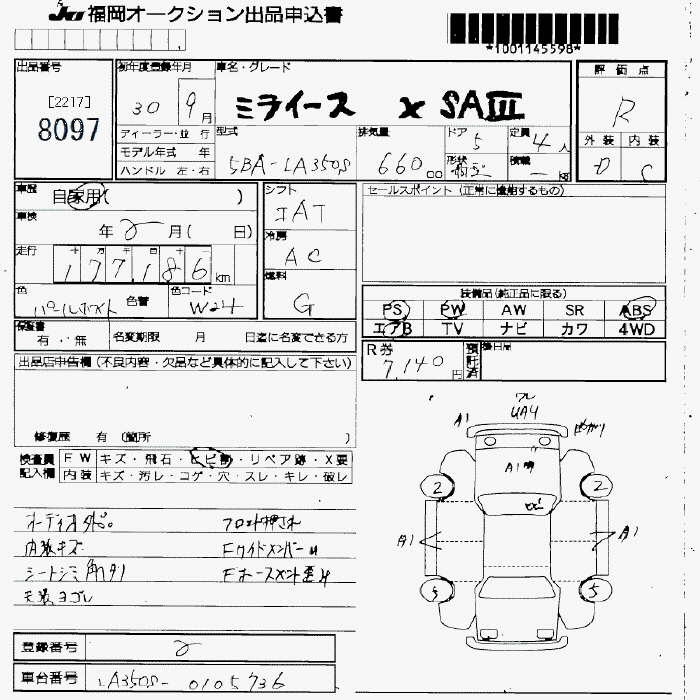 JU 福岡オークション出品申込書
*1001145598*
出品番号
[2217]
8097
初年度登録年月
30 9月
車名・グレード
ミライース X SAⅢ
評価点
R
外装 内装
D C
ディーラー・並行
モデル年式 年
ハンドル 左・右
型式
5BA-LA350S
排気量
660 cc
ドア
5
形状
定員
4人
積載
― kg
車歴
自家用( )
車検
年 月( 日)
走行
十 万 千 百 十 一
177186 km
色
パールホワイト
色替
色コード
W24
シフト
IAT
冷房
AC
燃料
G
セールスポイント (正常に作動するもの)
装備品(純正品に限る)
PS PW AW SR ABS
エアB TV ナビ カワ 4WD
保証書
有・無
名変期限 月 日迄に名変できる方
R券
7,140円
預託済
後日品
出品店申告欄 (不良内容・欠品など具体的に記入して下さい)
修復歴 有 (箇所 )
検査員記入欄
FW キズ・飛石・ヒビ・リペア跡・X要
内装 キズ・汚レ・コゲ・穴・スレ・キレ・破レ
オーディオ外し
内装キズ
シートシミ
天張ヨゴレ
フロント押され
Fサイドメンバー
登録番号
車台番号
LA350S-0105736
A1
UA4
A1
ヒビ
2 2
A1 A1
5 5